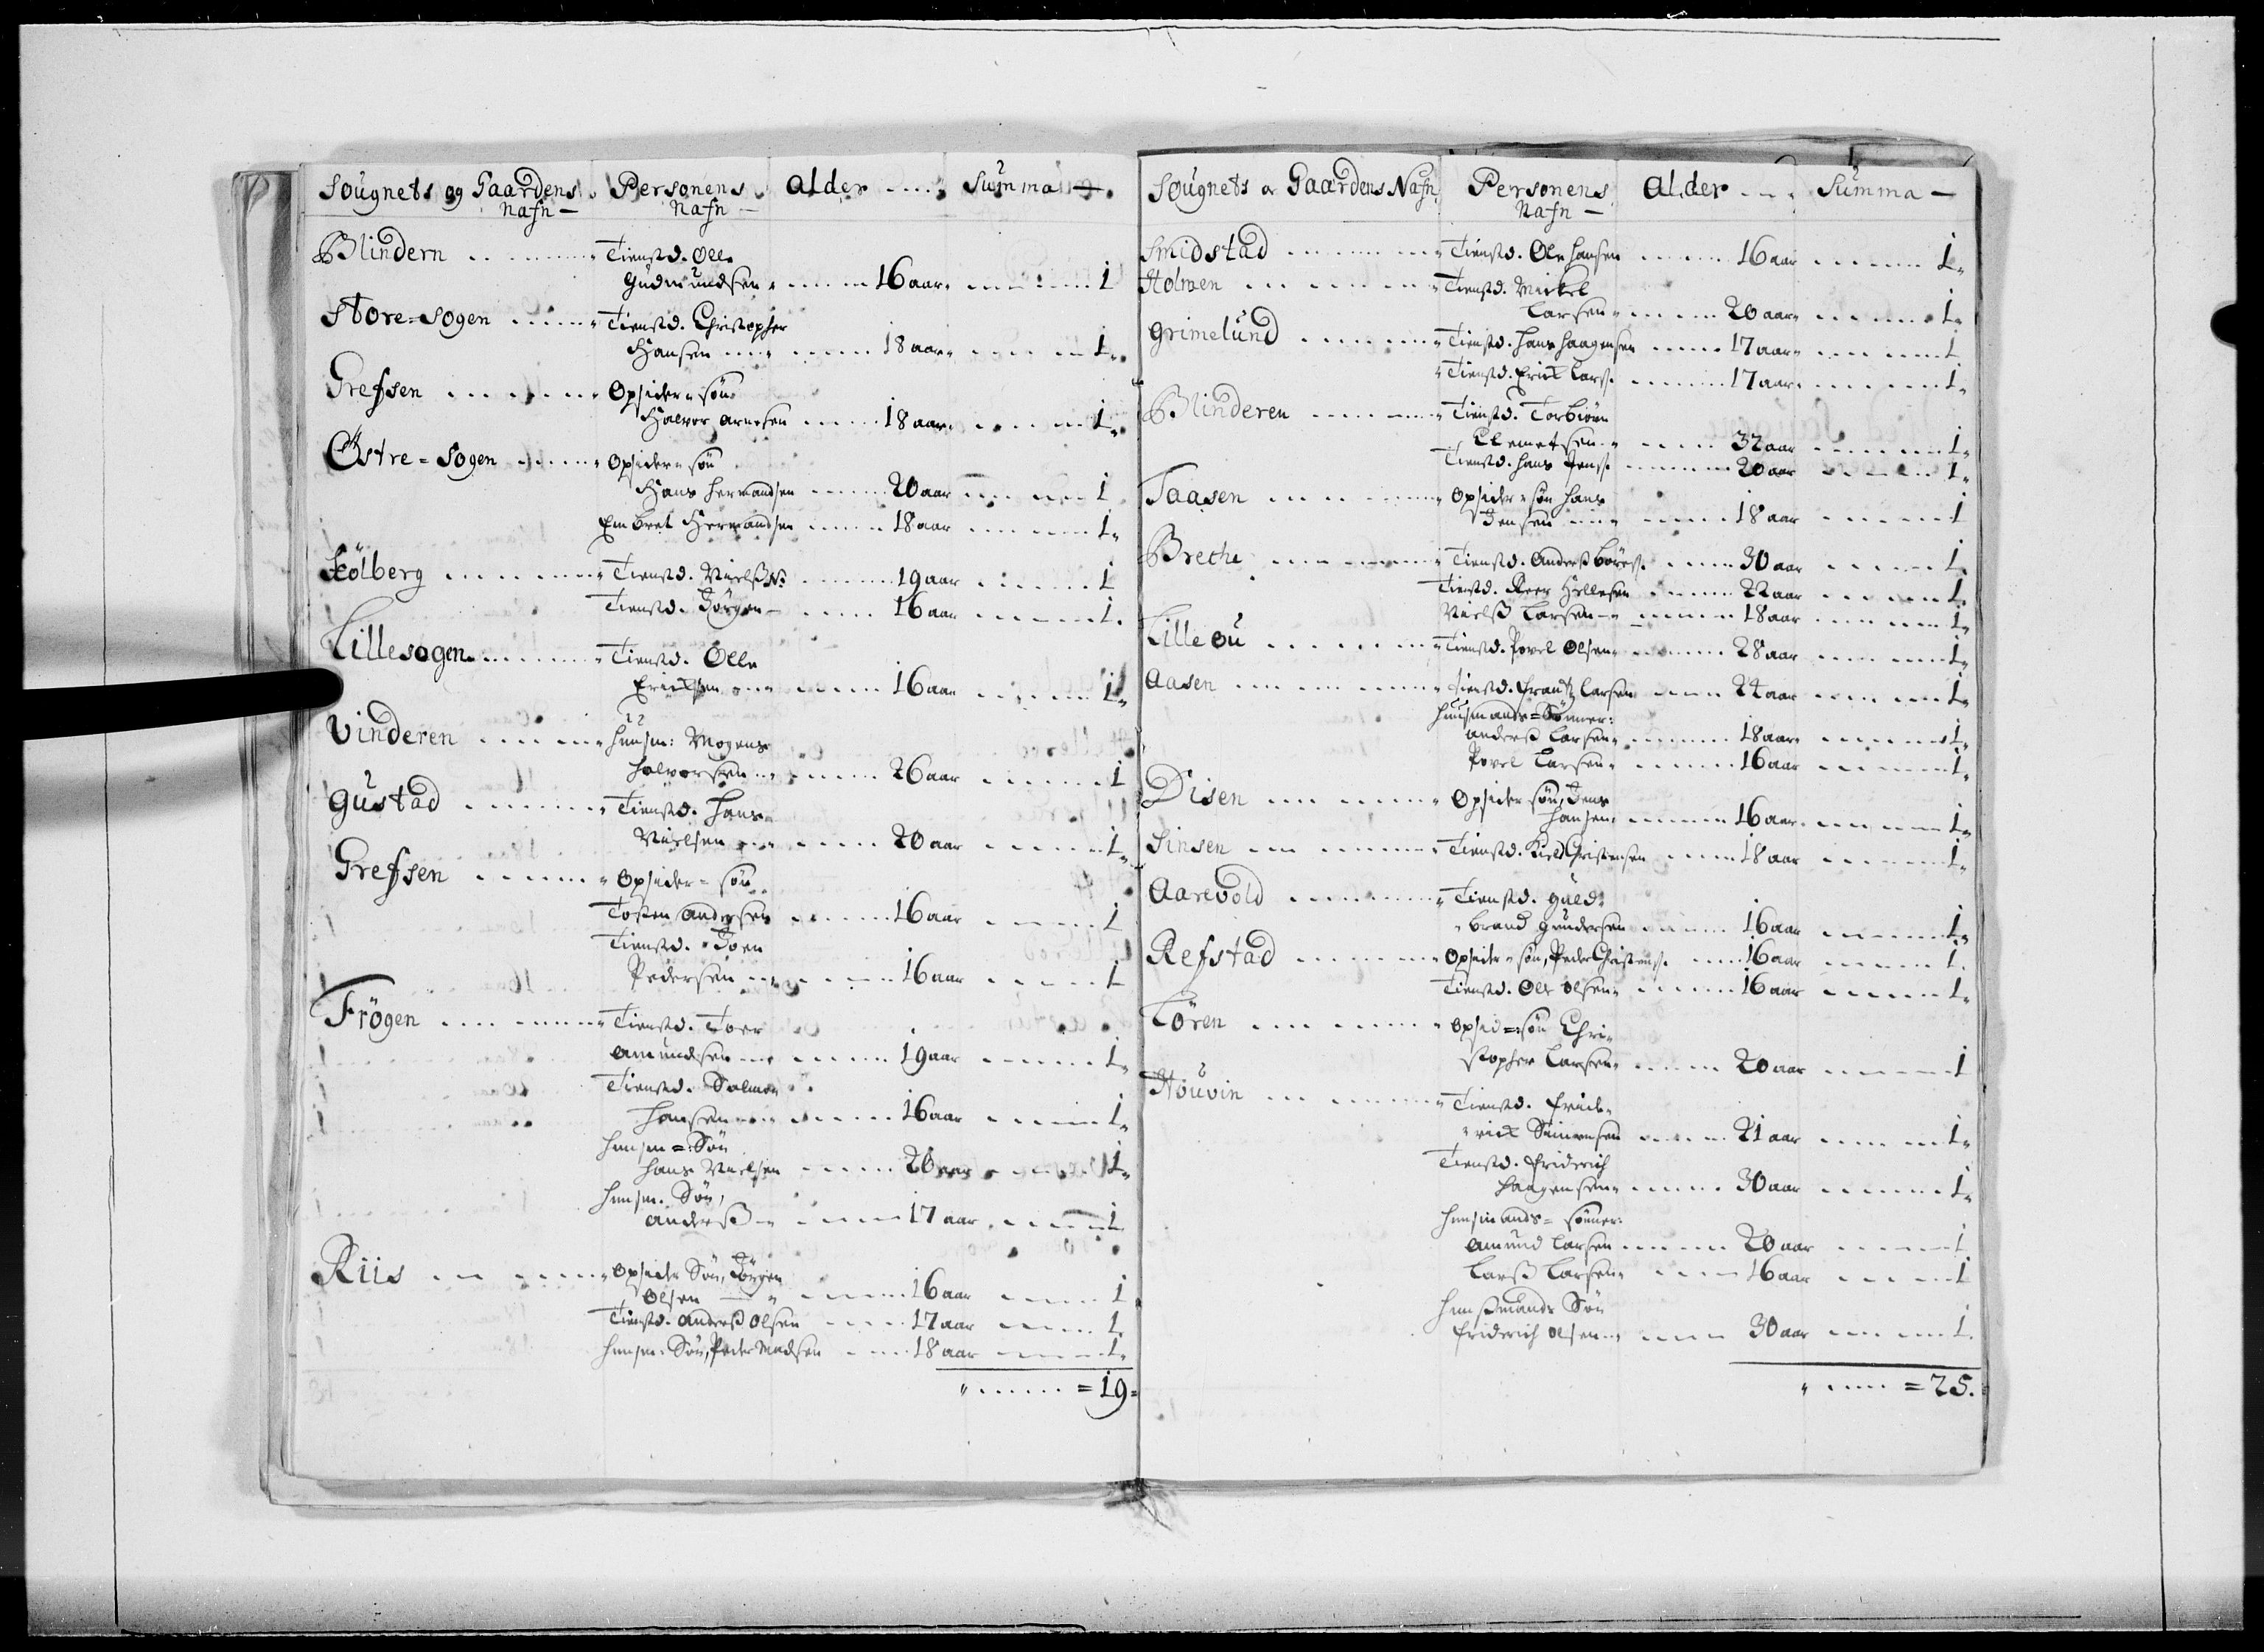 Sougnets og Gaardens Nafn — Personens Nafn — Alder .... Summa —
Blindern .. ...... Tienstd. Olle
Gudmundsen ...... 16 aar ...... 1
Store=Sogen ...... Tienstd. Christopher
Hansen ...... 18 aar ...... 1
Grefsen ...... Opsider=søn
Halvor Arnesen ...... 18 aar ...... 1
Østre=Sogen ...... Opsider=søn
Hans Hermandsen ...... 20 aar ...... 1
Embret Hermandsen ...... 18 aar ...... 1
Kölberg ...... Tienstd. Nielß N: ...... 19 aar ...... 1
Tienstd. Jörgen ...... 16 aar ...... 1
Lillesogen ...... Tienstd. Olle
Erichsen ...... 16 aar ...... 1
Vinderen ...... Huusm: Mogens
Halvorsen ...... 26 aar ...... 1
Gustad ...... Tienstd. Hans
Nielsen ...... 20 aar ...... 1
Grefsen ...... Opsider=søn
Tosten Andersen ...... 16 aar ...... 1
Tienstd. Joen
Pedersen ...... 16 aar ...... 1
Frögen ...... Tienstd. Toer
Amundsen ...... 19 aar ...... 1
Tienstd. Salmon
Hansen ...... 16 aar ...... 1
Huusm=Søn
Hans Nielsen ...... 20 aar ...... 1
Huusm. Søn,
Anderß ...... 17 aar ...... 1
Riis ...... Opsider Søn, Jörgen
Olsen ...... 16 aar ...... 1
Tienstd. Anderß Olsen ...... 17 aar ...... 1
Huusm. Søn, Peder Madsen ...... 18 aar ...... 1
...... = 19 =
Sougnets og Gaardens Nafn Personens Nafn — Alder ... Summa —
Smidstad ...... Tienstd. Ole Hansen ...... 16 aar ...... 1
Holmen ...... Tienstd. Mickel
Larsen ...... 20 aar ...... 1
Grimelund ...... Tienstd. Hans Haagensen ...... 17 aar ...... 1
Tienstd. Erich Larss. ...... 17 aar ...... 1
Blinderen ...... Tienstd. Torbiörn
Clemetsen ...... 32 aar ...... 1
Tienstd. Hans Jenss. ...... 20 aar ...... 1
Taasen ...... Opsider=søn Hans
Jensen ...... 18 aar ...... 1
Brethe ...... Tienstd. Anderß Böress. ...... 30 aar ...... 1
Tienstd. Peer Hellesen ...... 22 aar ...... 1
Nielß Larsen ...... 18 aar ...... 1
Lille ou ...... Tienstd. Povel Olsen ...... 28 aar ...... 1
Aasen ...... Tienstd. Frantz Larsen ...... 24 aar ...... 1
Huusmands=Sönner:
Anderß Larsen ...... 18 aar ...... 1
Povel Larsen ...... 16 aar ...... 1
Disen ...... Opsider søn, Jens
Hansen ...... 16 aar ...... 1
Sinsen ...... Tienstd. Kield Christensen ...... 18 aar ...... 1
Aarevold ...... Tienstd. Guld=
brand Gundersen ...... 16 aar ...... 1
Refstad ...... Opsider=søn, Peder Christenss. ...... 16 aar ...... 1
Tienstd. Ole Olsen ...... 16 aar ...... 1
Lören ...... Opsid=søn Chri=
stopher Larsen ...... 20 aar ...... 1
Houvin ...... Tienstd. Fride=
rich Simensen ...... 21 aar ...... 1
Tienstd. Friderich
Haagensen ...... 30 aar ...... 1
Huusmands=sönner:
Amund Larsen ...... 20 aar ...... 1
Larß Larsen ...... 16 aar ...... 1
Huußmands Søn
Friderich Olsen ...... 30 aar ...... 1
...... = 25.